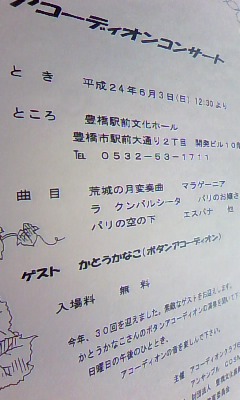 アコーディオンコンサート
とき 平成24年6月3日(日) 12:30より
ところ 豊橋駅前文化ホール
豊橋市駅前大通り2丁目 開発ビル10階
℡ 0532-53-1711
曲目 荒城の月変奏曲 マラゲーニア
ラ クンパルシータ パリのお嬢さ
パリの空の下 エスパナ 他
ゲスト かとうかなこ(ボタンアコーディオン)
入場料 無料
今年、30回を迎えました。素敵なゲストをお迎えします。
かとうかなこさんのボタンアコーディオンの演奏を
日曜日の午後のひととき、
アコーディオンの音を楽しんで下さい。
主催 アコーディオンクラブ
アンサンブル